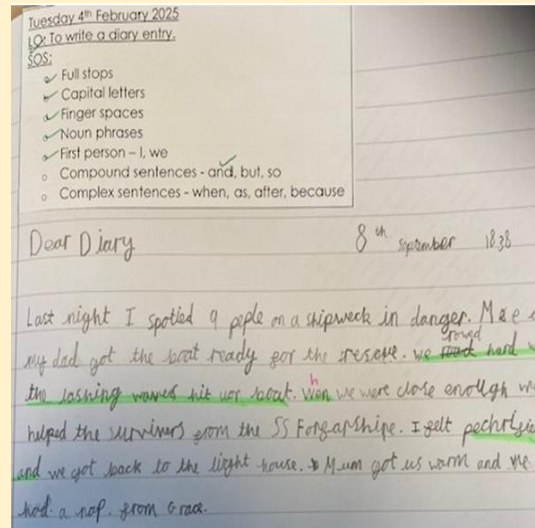 Tuesday 4th February 2025
LO: To write a diary entry.
SOS:
Full stops
Capital letters
Finger spaces
Noun phrases
First person – I, we
Compound sentences - and, but, so
Complex sentences - when, as, after, because
Dear Diary
8th September 1838
Last night I spotied 9 peple on a shipweck in danger. Me
my dad got the boat ready for the rescue. we rowed hard
the lashing waves hit uor boat. When we were close enough
helped the surviners from the SS Forfarshipe. I felt
and we got back to the light house. Mum got us warm and we
had a nap. from Grace.